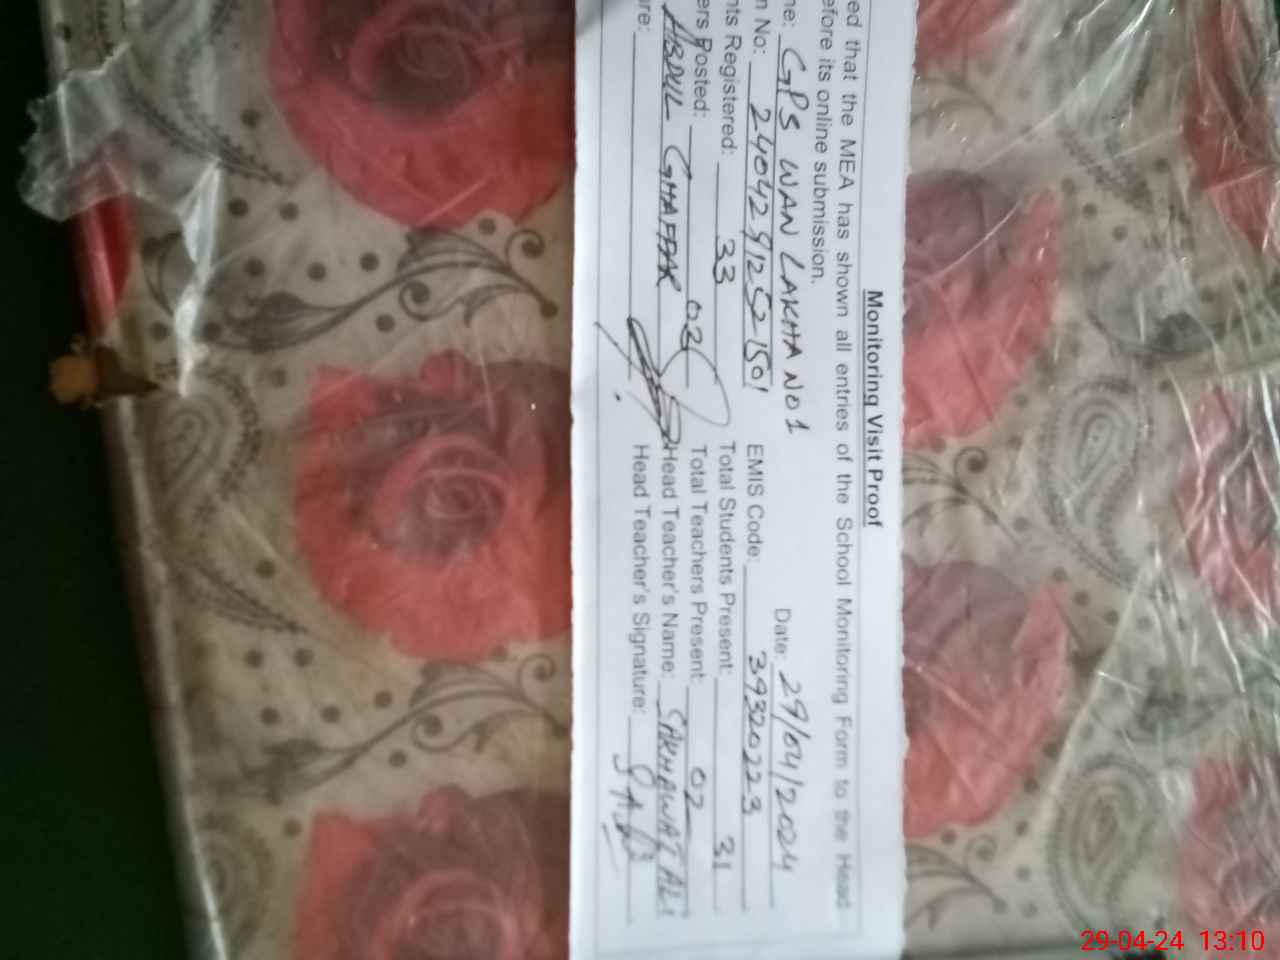 Monitoring Visit Proof
ed that the MEA has shown all entries of the School Monitoring Form to the Head
efore its online submission.
ne: GPS WAN LAKHA NO 1 Date: 29/04/2024
n No: EMIS Code: 39320223
nts Registered: 33 Total Students Present: 31
ers Posted: 02 Total Teachers Present: 02
ABDUL GHAFFAR Head Teacher's Name: SAKHAWAT ALI
re: Head Teacher's Signature:
29-04-24 13:10